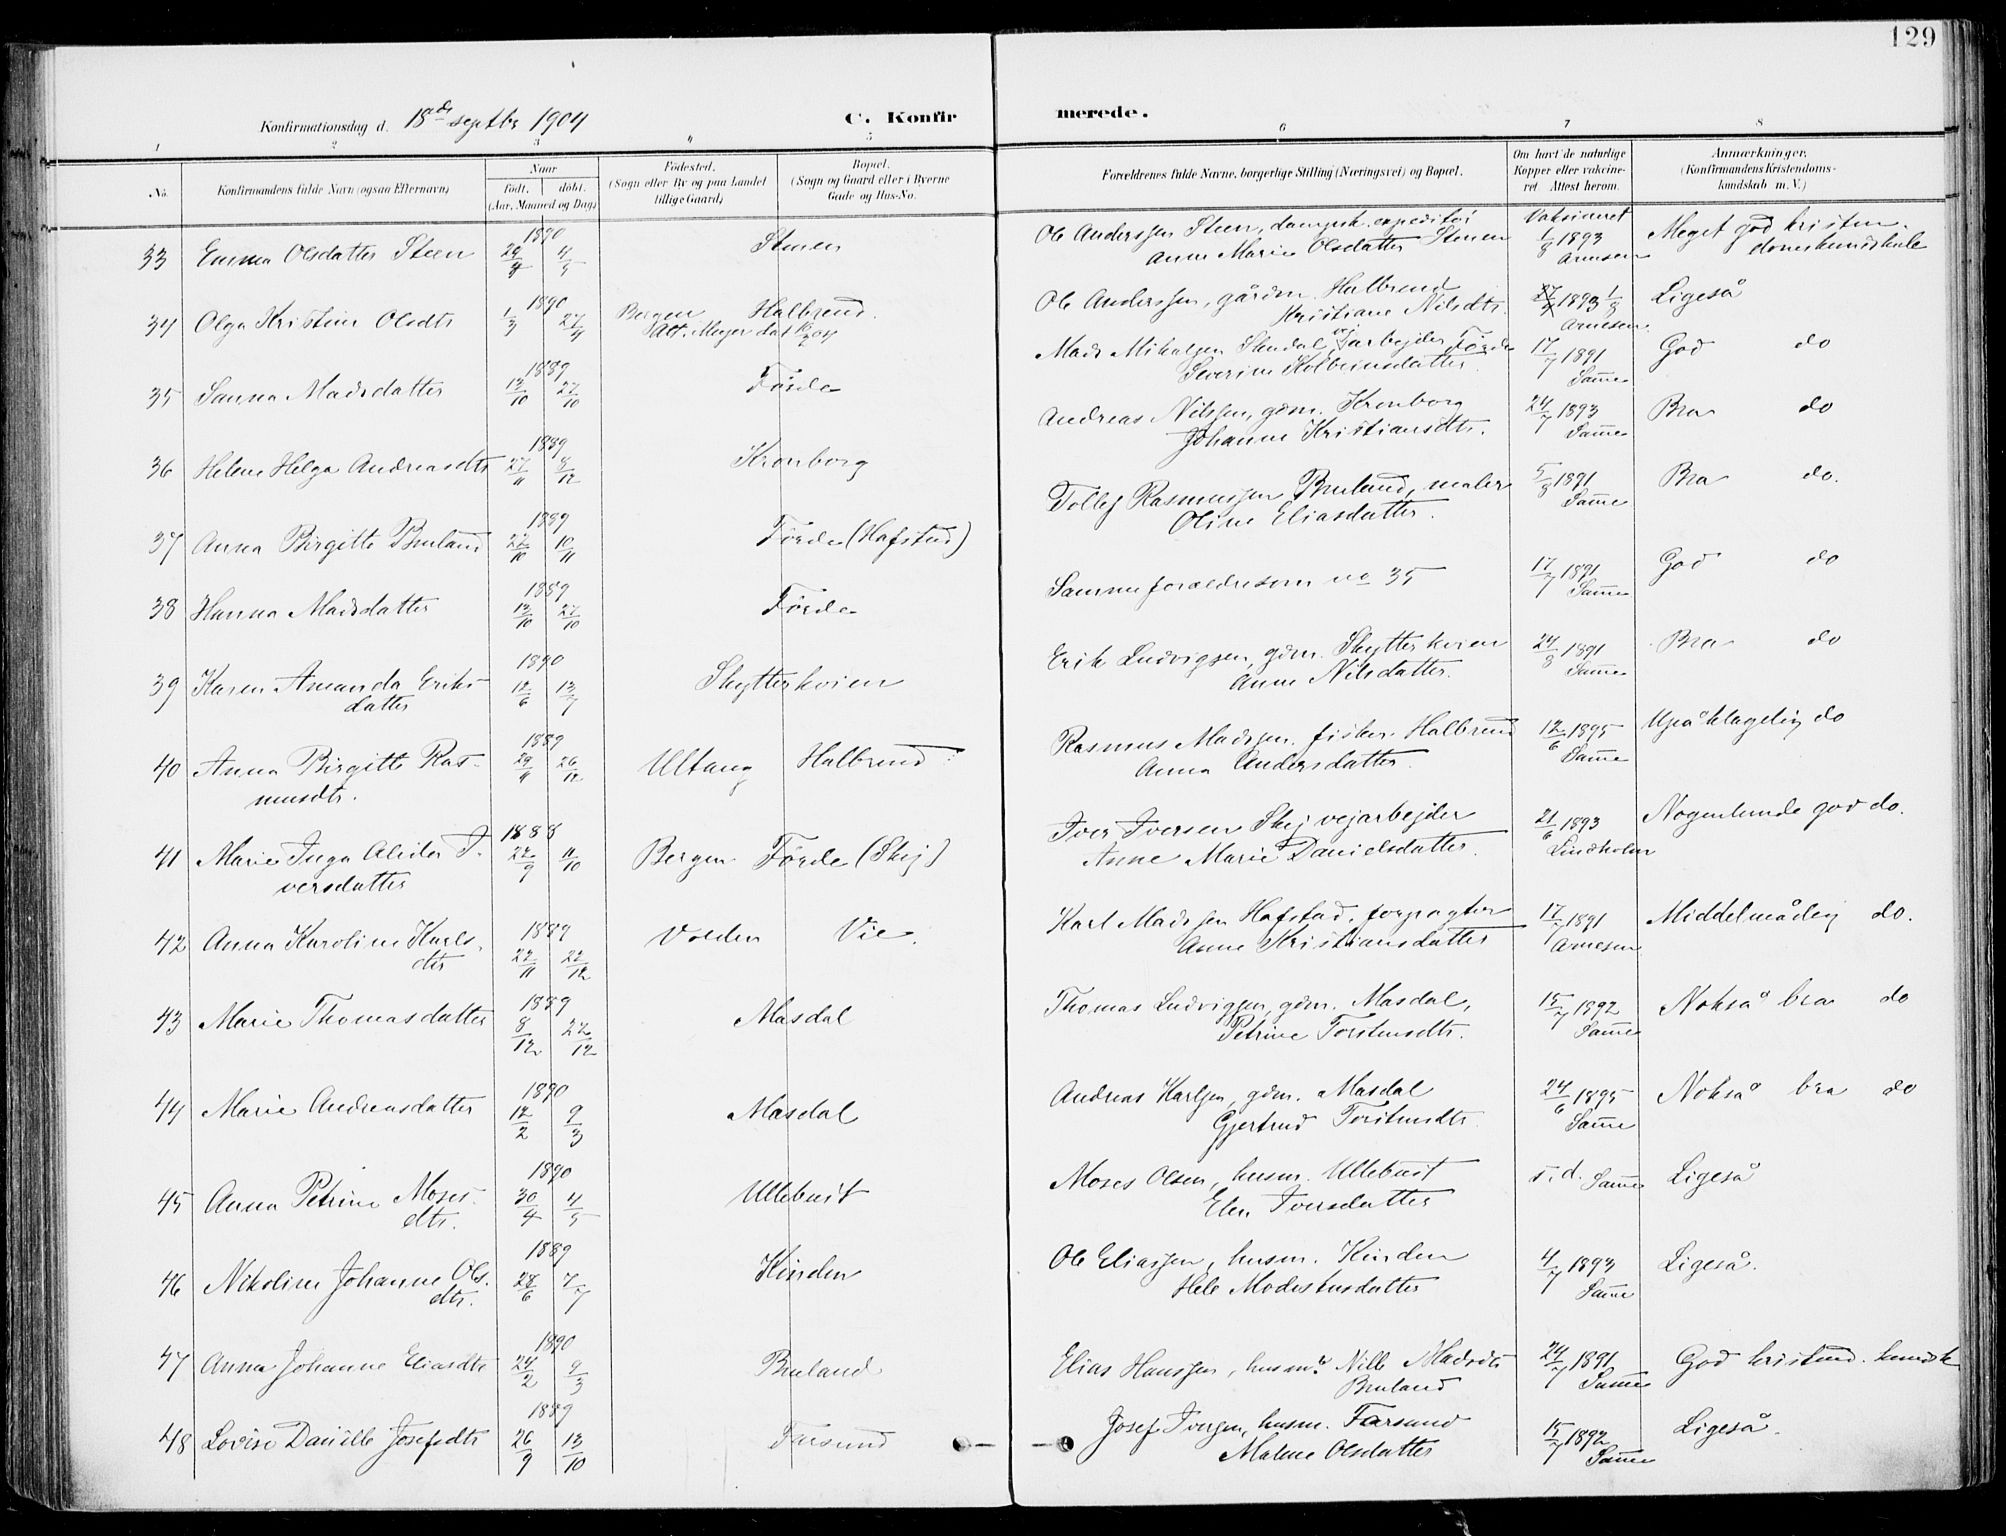 129
Konfirmationsdag d. 18de septbr 1904
C. Konfirmerede.
1 2 3 4 5 6 7 8
No. Konfirmandens fulde Navn (ogsaa Efternavn) Naar født. døbt. (Aar, Maaned og Dag) Fødested. (Sogn eller By og paa Landet tillige Gaard) Bopæl. (Sogn og Gaard eller i Byerne Gade og Hus-No. Forældrenes fulde Navne, borgerlige Stilling (Næringsvei) og Bopæl. Om havt de naturlige Kopper eller vakcineret. Attest herom. Anmærkninger. (Konfirmandens Kristendomskundskab m. V.)
33 Emma Olsdatter Steen 1890 29/4 4/5 Stenen Ole Anderssen Steen, dampsk. expeditør Stenen Vaksineret 1/8 1893 Meget god kristen-
Anne Marie Olsdatter Arnesen domskundskab
34 Olga Kristine Olsdtr 1890 1/3 27/4 Bergen Halbrend. Ole Anderssen, gårdm. Halbrend 1893 1/8 Ligeså
Att. Meyer dat 04 Kristiane Nilsdtr. Arnesen
35 Sanna Madsdatter 1889 13/10 27/10 Førde Mads Mikalsen Slendal, vejarbejder Førde 17/7 1891 God do
Severine Kolbeinsdatter Samme
36 Helene Helga Andreasdtr 1889 27/11 8/12 Kronborg Andreas Nilssen, gdm. Kronborg 24/7 1893 Bra do
Johanne Kristiansdtr. Samme
37 Anna Birgitte Bruland 1889 22/10 10/11 Førde (Hafstad) Tollef Rasmussen Bruland, maler 5/8 1891 Bra do.
Oline Eliasdatter. Samme
38 Hanna Madsdatter 1889 13/10 27/10 Førde Samme forældre som no 35 17/7 1891 God do
Samme
39 Karen Amanda Eriks- 1890 12/6 13/7 Skytterkvien Erik Ludvigsen, gdm. Skytterkvien 24/8 1891 Bra do
datter Anne Nilsdatter. Samme
40 Anna Birgitte Ras- 1889 29/11 26/12 Ultang Halbrend Rasmus Madssen fisker Halbrend 12/6 1895 Upåklagelig do
musdtr. Anna Andersdatter. Samme
41 Marie Inga Alida I- 1888 22/9 11/10 Bergen Førde (Skej) Iver Iversen Skej vejarbejder 21/6 1893 Nogenlunde god do.
versdatter Anne Marie Danielsdatter. Lindholm
42 Anna Karoline Karls- 1889 22/11 22/12 Volden Vie. Karl Madssen Hafstad, forpagter 17/7 1891 Middelmådig do.
dtr Anne Kristiansdatter Arnesen
43 Marie Thomasdatter 1889 8/12 22/12 Masdal Thomas Ludvigsen, gdm. Masdal, 15/7 1892 Nokså bra do
Petrine Torstensdtr. Samme
44 Marie Andreasdatter 1890 12/2 9/3 Masdal Andreas Karlsen, gdm. Masdal 24/6 1895 Nokså bra do
Gjertrud Torstensdtr. Samme
45 Anna Petrine Moses- 1890 30/4 4/5 Ullebust Moses Olsen, husm. Ullebust s.d. Samme Ligeså
dtr. Elen Iversdatter
46 Nikoline Johanne Ols- 1889 28/6 7/7 Kinden Ole Eliassen, husm. Kinden 4/7 1893 Ligeså.
dtr. Hele Modestusdatter Samme
47 Anna Johanne Eliasdtr 1890 24/2 9/3 Bruland Elias Hanssen, husm. Nille Madsdtr 24/7 1891 God kristend. kundsk
Bruland Samme
48 Lovise Danille Josefsdtr 1889 26/9 13/10 Farsund Josef Iversen, husm. Farsund 15/7 1892 Ligeså.
Malene Olsdatter Samme